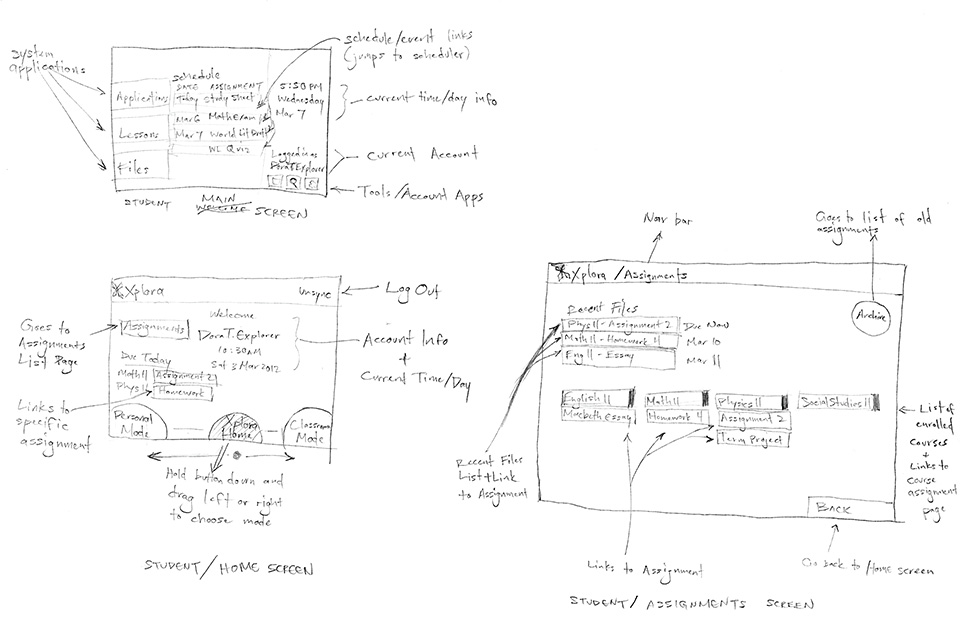 System
applications
schedule/event links
(jumps to scheduler)
Schedule
DATE ASSIGNMENT
Today Study Sheet
Mar 6 Math Exam
Mar 7 World Lit Draft
WL Quiz
Applications
Lessons
Files
5:30 PM
Wednesday
Mar 7
Logged in as
Dora T. Explorer
current time/day info
Current Account
Tools/Account Apps
STUDENT MAIN SCREEN
WELCOME
Xplora
Unsync
Log Out
Welcome
Assignments
Dora T. Explorer
10:30AM
Sat 3 Mar 2012
Goes to
Assignments
List Page
Account Info
+
Current Time/Day
Due Today
Math 11 Assignment 2
Phys 11 Homework
Links to
specific
assignment
Personal
Mode
Xplora
Home
Classroom
Mode
Hold button down and
drag left or right
to choose mode
STUDENT/HOME SCREEN
Nav bar
Goes to list of old
assignments
Xplora /Assignments
Archive
Recent Files
Phys 11 - Assignment 2 Due Now
Math 11 - Homework 4 Mar 10
Eng 11 - Essay Mar 11
English 11
Macbeth Essay
Math 11
Homework 4
Physics 11
Assignment 2
Term Project
Social Studies 11
List of
enrolled
courses
+
Links to
course
assignment
page
Recent Files
List+Link
to Assignment
BACK
Links to Assignment
Go back to /Home screen
STUDENT/ ASSIGNMENTS SCREEN